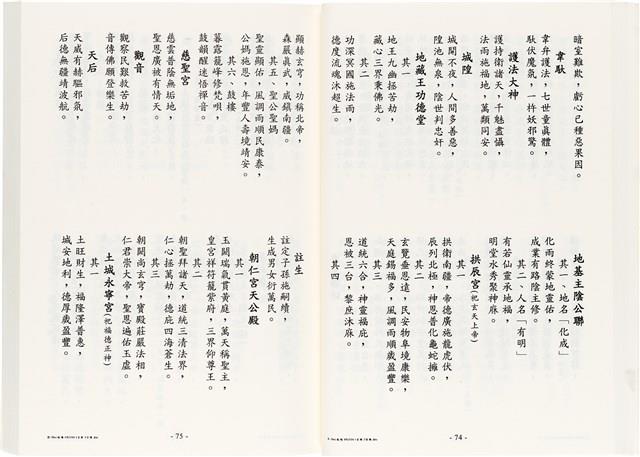 暗室難欺，虧心己種惡果因。
韋馱
韋弁護法，七世童真體，
馱伏魔氣，一杵妖邪驚。
護法大神
護持衛諸天，千魅盡懾，
法雨施福地，萬類同安。
城隍
城開不夜，人間多善惡，
隍池無泉，陰世判忠奸。
地藏王功德堂
其一
地王九幽拯苦劫，
藏心三界秉佛光。
其二
功深冥國施法雨，
德度流魂沐超生。
地基主陰公聯
其一、地名「化成」
化雨終蒙地靈佑，
成業有路陰主修。
其二、人名「有明」
有若仙靈承地福，
明堂水秀聚神庥。
拱辰宮（祀玄天上帝）
其一
拱衛南疆，帝德廣施龍虎伏，
辰列北極，神恩普化龜蛇擁。
其二
玄覽盡恩遠，民安物阜境康樂，
天庭錫福多，風調雨順歲盈豐。
其三
道統六合，神靈福庇，
恩被三台，黎庶沐庥。
其四
- 74 -
顯赫玄帝，功稱北帝，
森嚴真武，威鎮南疆。
其五、聖公聖媽
聖靈顯佑，風調雨順民康泰，
公媽施恩，年豐人壽境靖安。
其六、鼓樓
暮靄籠峰修梵唄，
鼓韻醒迷悟禪音。
慈聖宮
慈雲普蔭無垢地，
聖恩廣被有情天。
觀音
觀察民艱救苦劫，
音傳佛願登樂生。
天后
天威有赫驅邪氛，
后德無疆靖波航。
註生
註定子孫施嗣續，
生成男女衍萬民。
朝仁宮天公殿
其一
玉闕瑞氣貫黃庭，萬天稱聖主，
皇宮祥符籠紫府，三界仰尊王。
其二
朝聖拜諸天，道統三清法界，
仁心拯萬劫，德庇四海蒼生。
其三
朝闕尚玄穹，寶殿莊嚴法相，
仁君崇大帝，聖恩遍佑玉虛。
土城永寧宮（祀福德正神）
其一
土旺財生，福隆澤普惠，
城安地利，德厚歲盈豐。
- 75 -